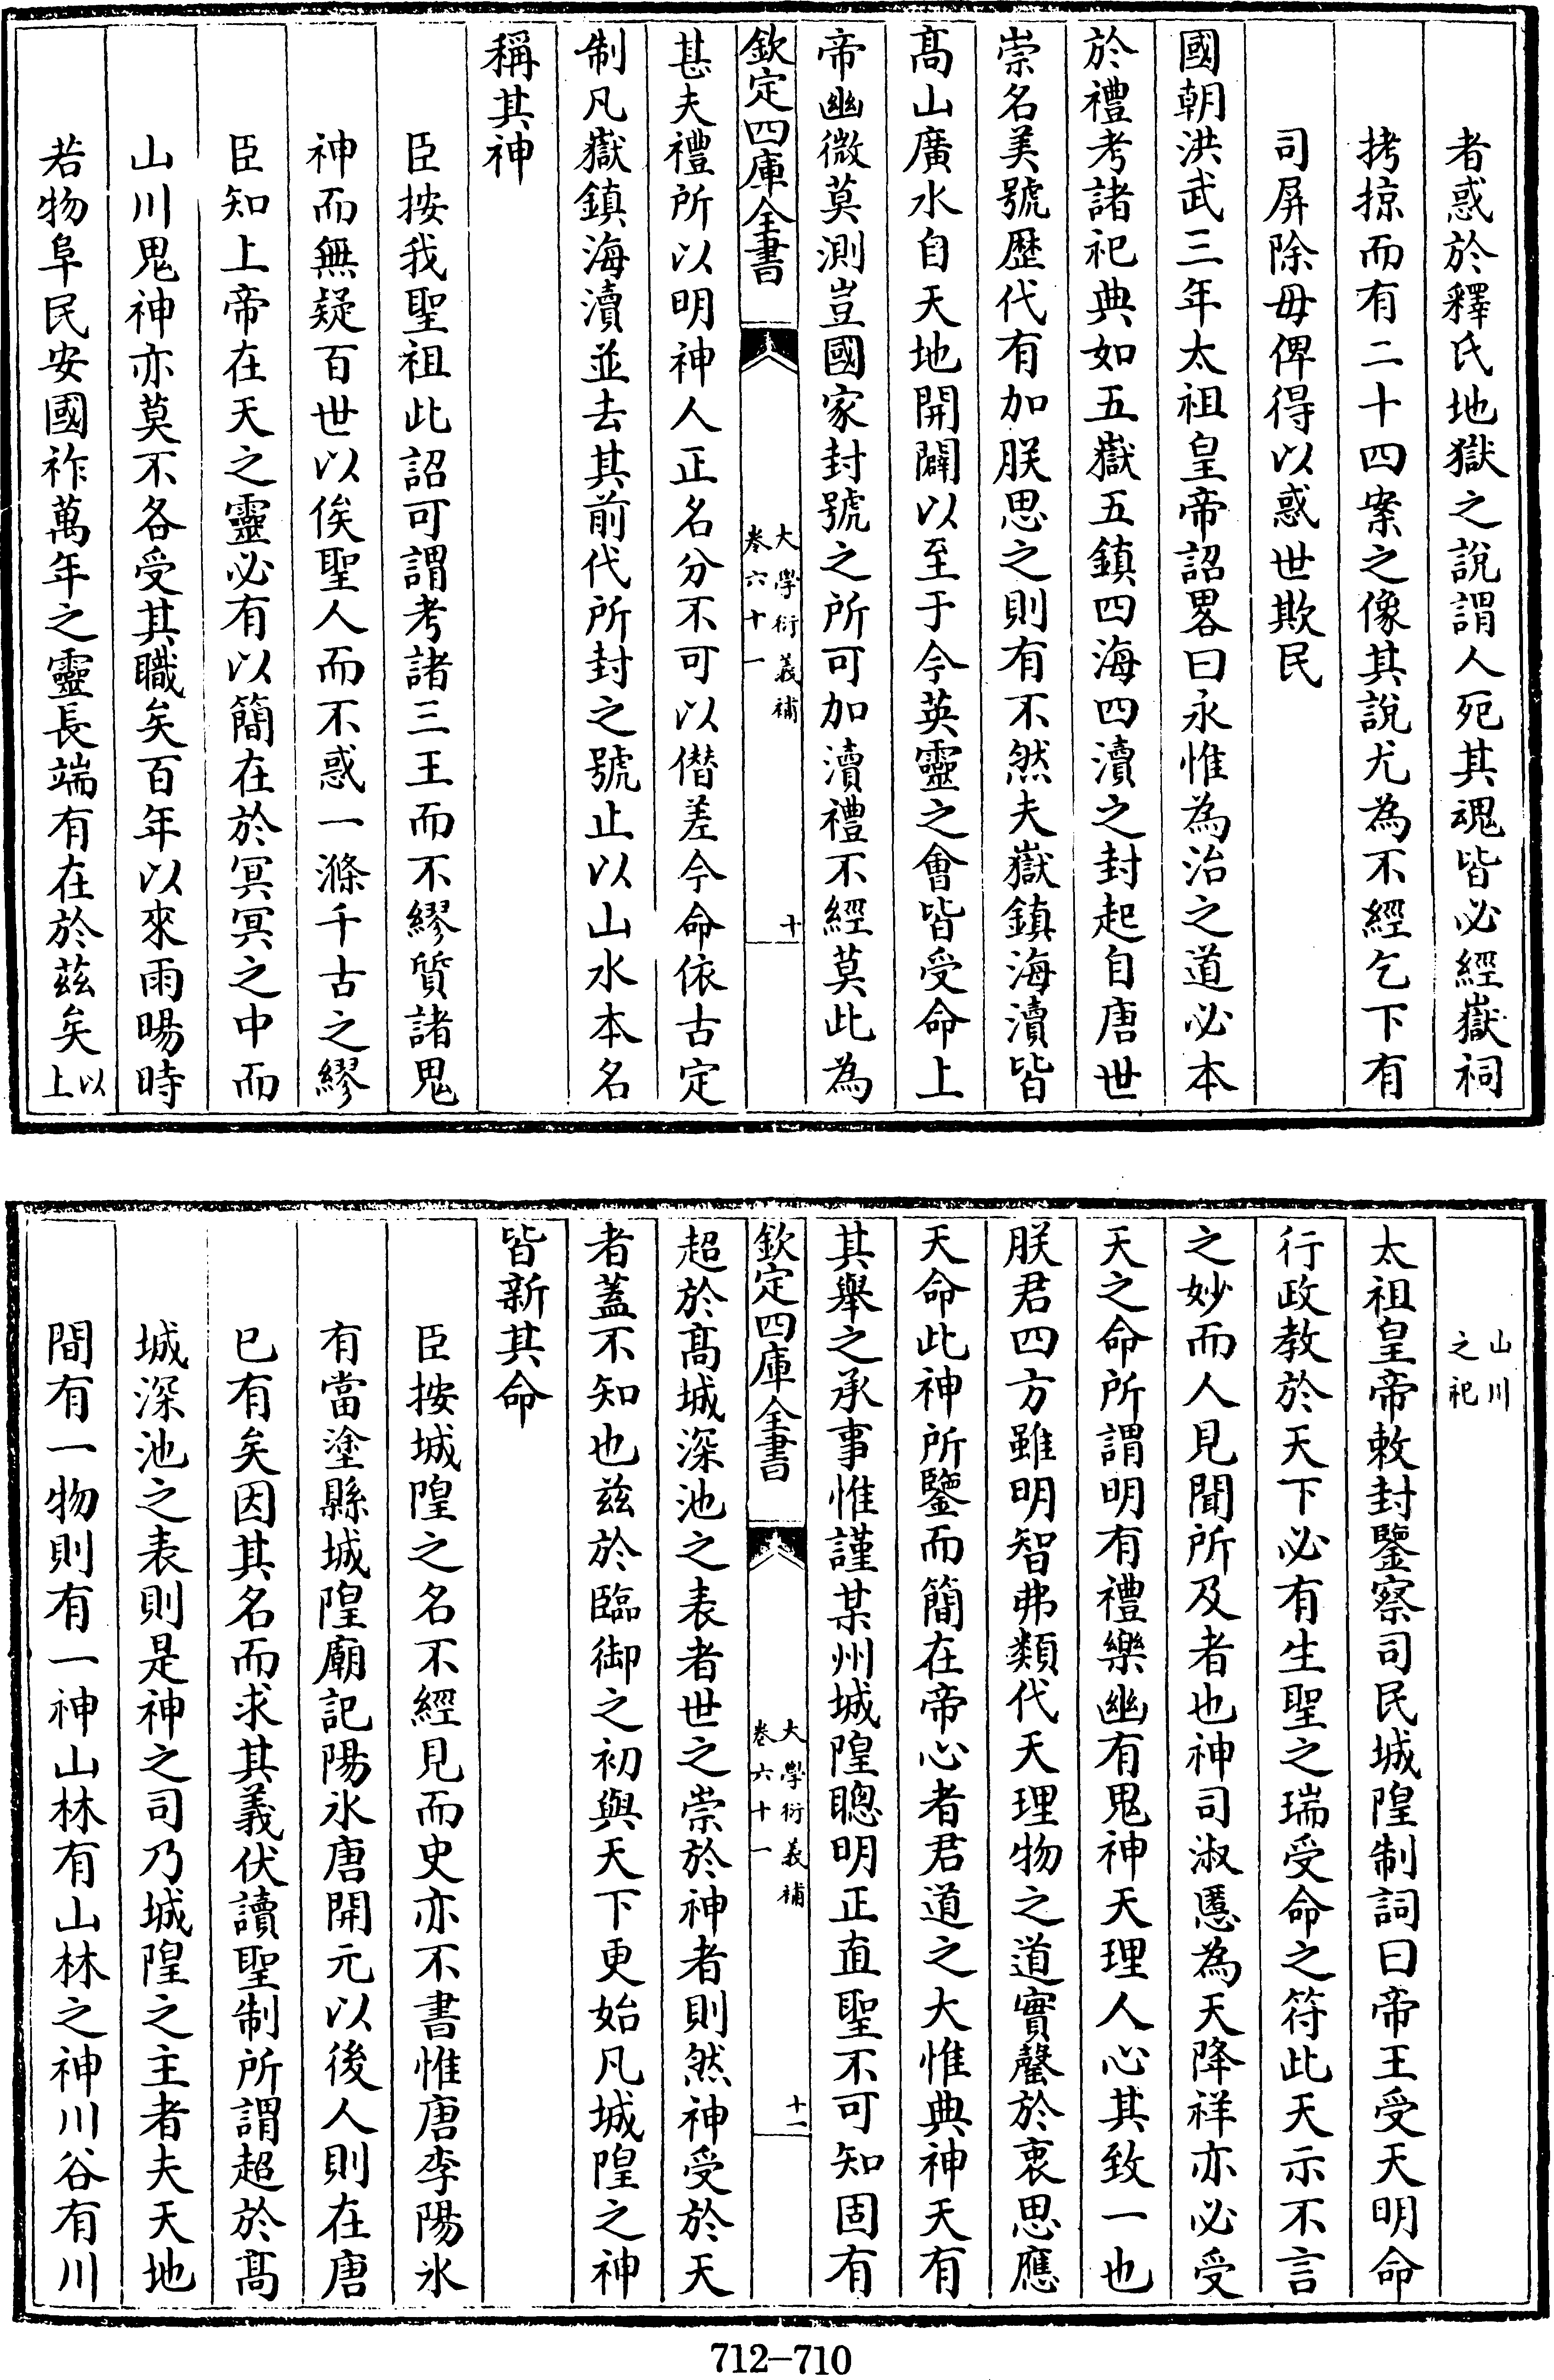 者惑於釋氏地獄之說謂人死其魂皆必經嶽祠
拷掠而有二十四案之像其說尤為不經乞下有
司屏除毋俾得以惑世欺民
國朝洪武三年太祖皇帝詔畧曰永惟為治之道必本
於禮考諸祀典如五嶽五鎮四海四瀆之封起自唐世
崇名美號歷代有加朕思之則有不然夫嶽鎮海瀆皆
髙山廣水自天地開闢以至于今英靈之會皆受命上
帝幽微莫測豈國家封號之所可加瀆禮不經莫此為
欽定四庫全書
大學衍義補
卷六十一
十
甚夫禮所以明神人正名分不可以僭差今命依古定
制凡嶽鎮海瀆並去其前代所封之號止以山水本名
稱其神
臣按我聖祖此詔可謂考諸三王而不繆質諸鬼
神而無疑百世以俟聖人而不惑一滌千古之繆
臣知上帝在天之靈必有以簡在於冥冥之中而
山川鬼神亦莫不各受其職矣百年以來雨暘時
若物阜民安國祚萬年之靈長端有在於兹矣以
上
山川
之祀
太祖皇帝敕封鑒察司民城隍制詞曰帝王受天明命
行政教於天下必有生聖之瑞受命之符此天示不言
之妙而人見聞所及者也神司淑慝為天降祥亦必受
天之命所謂明有禮樂幽有鬼神天理人心其致一也
朕君四方雖明智弗類代天理物之道實罄於衷思應
天命此神所鑒而簡在帝心者君道之大惟典神天有
其舉之承事惟謹某州城隍聰明正直聖不可知固有
欽定四庫全書
大學衍義補
卷六十一
十一
超於髙城深池之表者世之崇於神者則然神受於天
者蓋不知也兹於臨御之初與天下更始凡城隍之神
皆新其命
臣按城隍之名不經見而史亦不書惟唐李陽氷
有當塗縣城隍廟記陽氷唐開元以後人則在唐
已有矣因其名而求其義伏讀聖制所謂超於髙
城深池之表則是神之司乃城隍之主者夫天地
間有一物則有一神山林有山林之神川谷有川
712-710